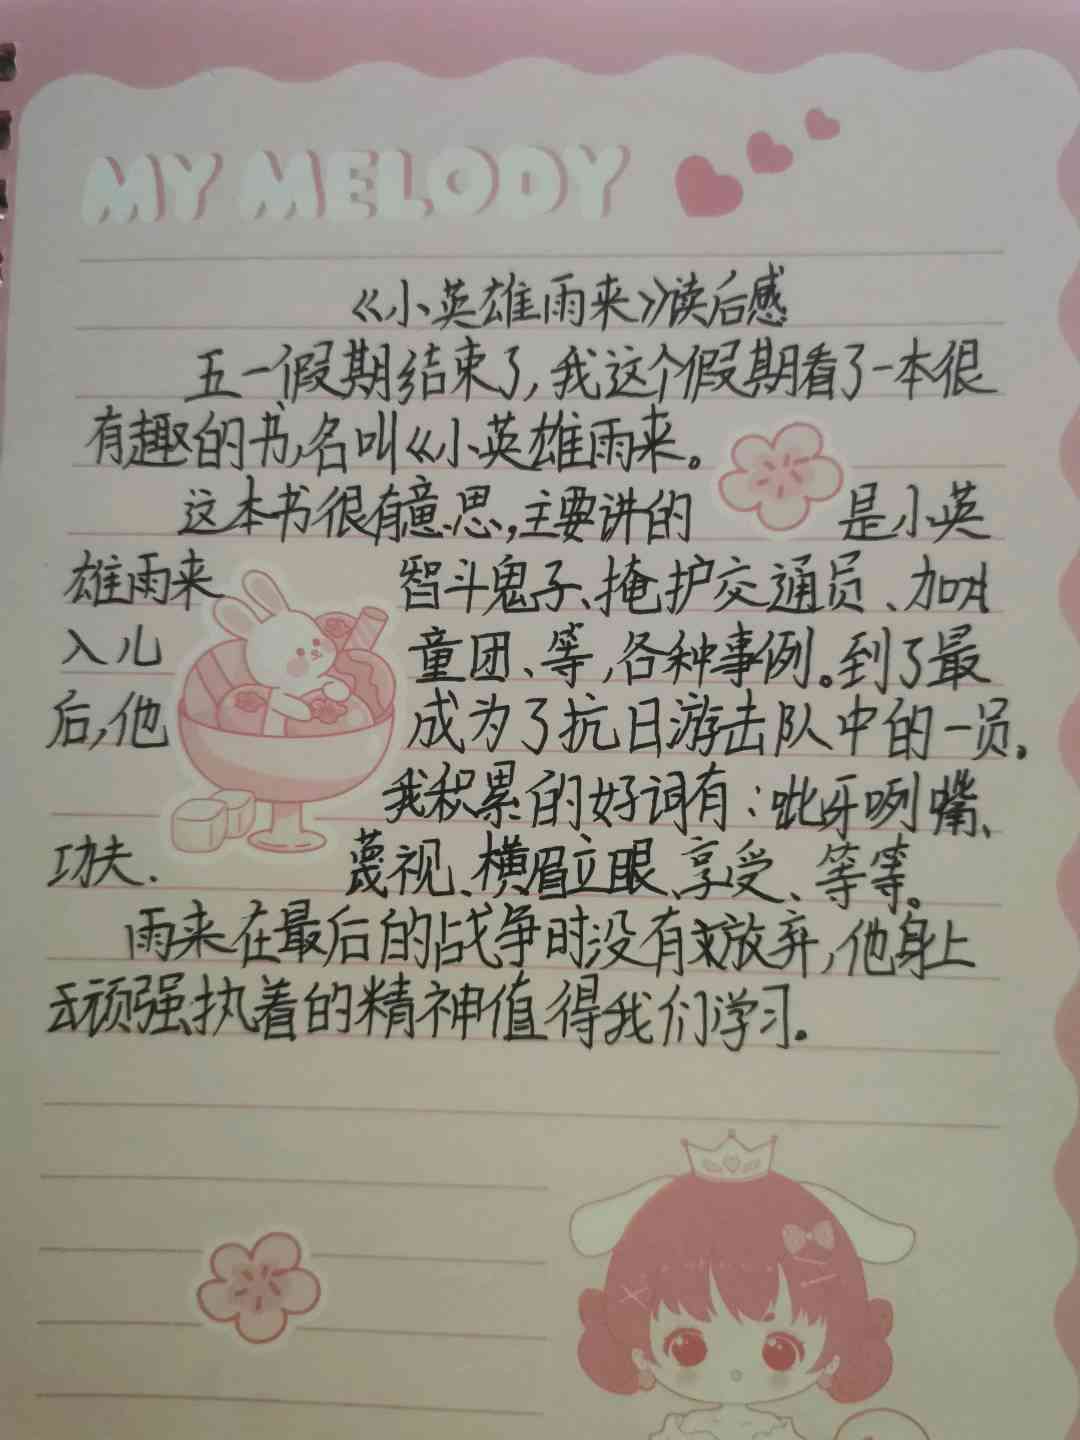 MY MELODY
《小英雄雨来》读后感
五一假期结束了,我这个假期看了一本很
有趣的书,名叫《小英雄雨来。
这本书很有意思,主要讲的是小英
雄雨来智斗鬼子、掩护交通员、加
入儿童团、等,各种事例。到了最
后,他成为了抗日游击队中的一员。
我积累的好词有:呲牙咧嘴、
功夫.蔑视、横眉立眼、享受、等等。
雨来在最后的战争时没有放弃,他身上
顽强执着的精神值得我们学习.